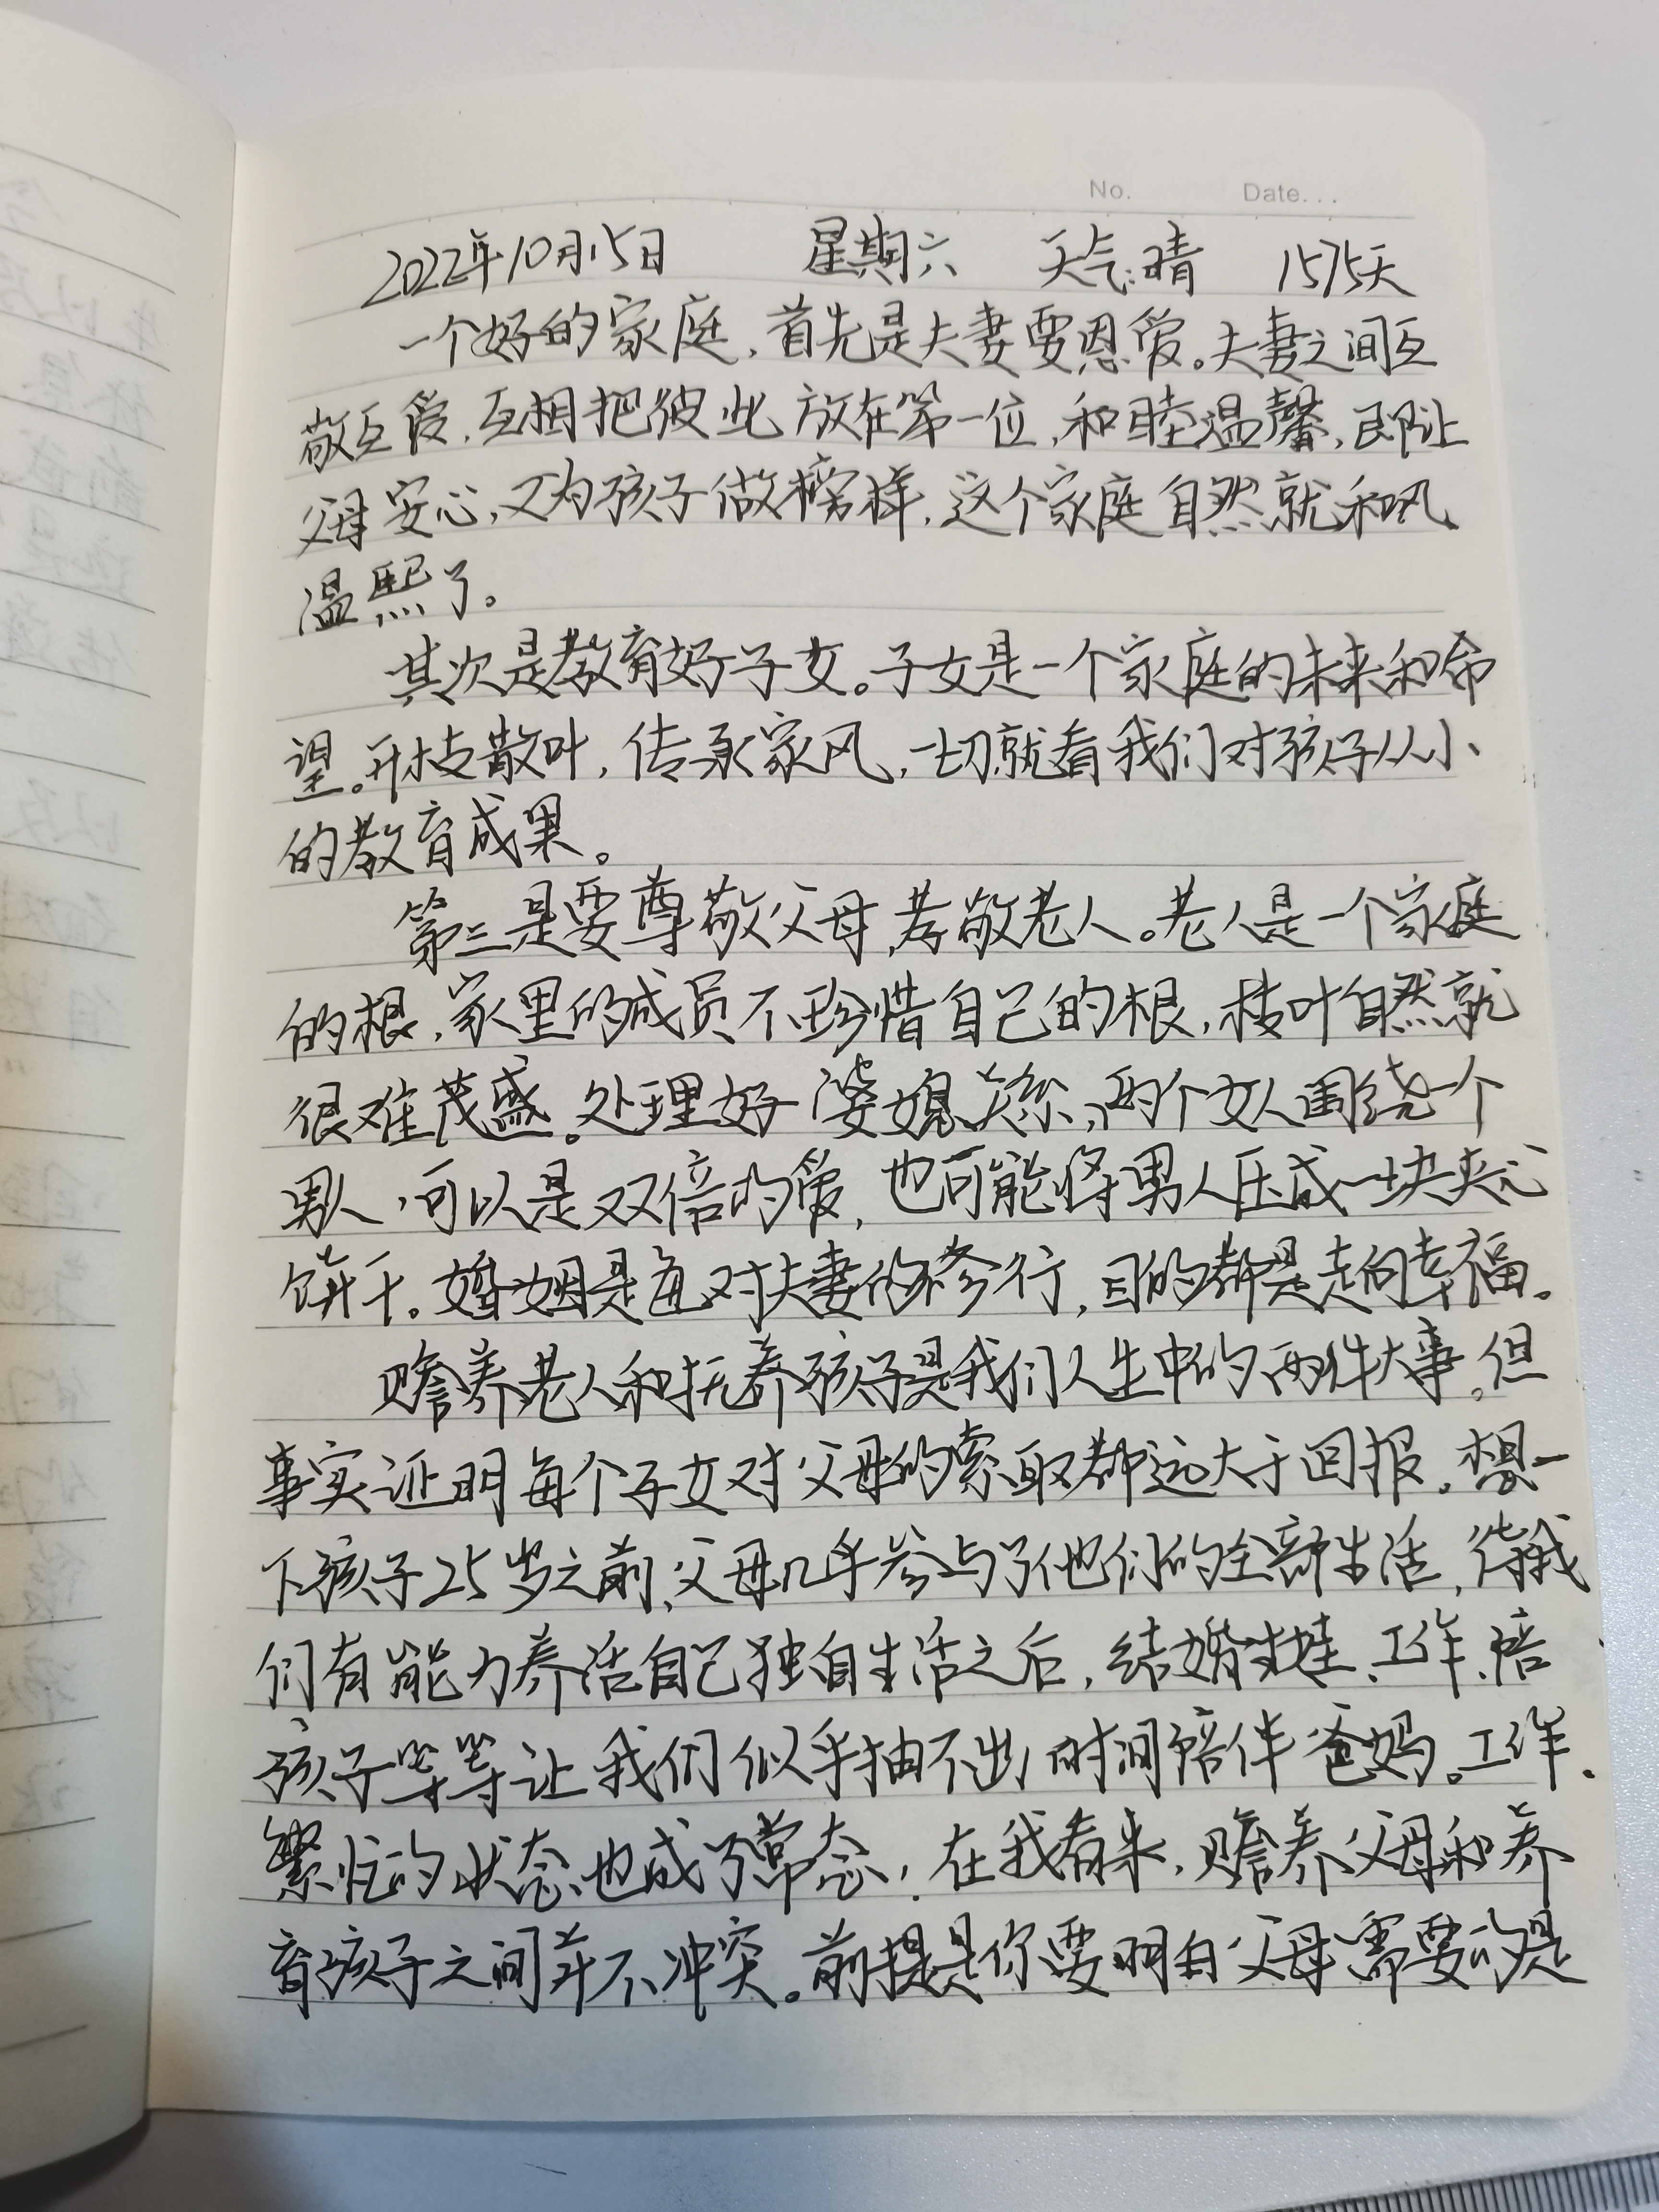 No. Date...
2022年10月15日 星期六 天气:晴 1575天
一个好的家庭,首先是夫妻要恩爱。夫妻之间互
敬互爱,互相把彼此放在第一位,和睦温馨,即让
父母安心,又为孩子做榜样,这个家庭自然就和风
温熙了。
其次是教育好子女。子女是一个家庭的未来和希
望。开枝散叶,传承家风,一切就看我们对孩子从小
的教育成果。
第三是要尊敬父母,孝敬老人。老人是一个家庭
的根,家里的成员不珍惜自己的根,枝叶自然就
很难茂盛。处理好婆媳关系,两个女人围绕一个
男人,可以是双倍的爱,也可能将男人压成一块夹心
饼干。婚姻是每对夫妻的修行,目的都是走向幸福。
赡养老人和抚养孩子是我们人生中的两件大事。但
事实证明每个子女对父母的索取都远大于回报。想一
下孩子25岁之前,父母几乎参与了他们的全部生活,待我
们有能力养活自己独自生活之后,结婚生娃、工作、陪
孩子等等让我们似乎抽不出时间陪伴爸妈。工作
繁忙的状态也成了常态,在我看来,赡养父母和养
育孩子之间并不冲突。前提是你要明白父母需要的是